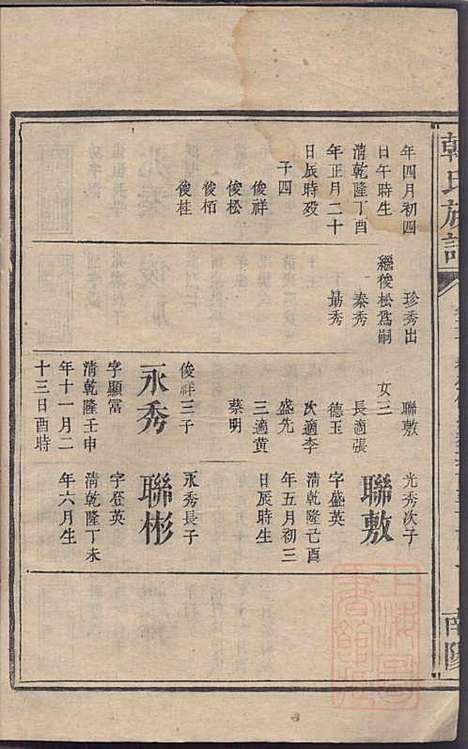 韓氏族譜
南陽
年四月初四
日午時生
清乾隆丁酉
年正月二十
日辰時歿
子四
俊祥
俊松
俊栢
俊桂
珍秀出
繼俊松爲嗣
泰秀
勗秀
聯敷
女三
長適張
德玉
次適李
盛先
三適黃
蔡明
俊祥三子
永秀
字顯富
清乾隆壬申
年十一月二
十三日酉時
光秀次子
聯敷
字盛英
清乾隆己酉
年五月初三
日辰時生
永秀長子
聯彬
字丕英
清乾隆丁未
年六月生